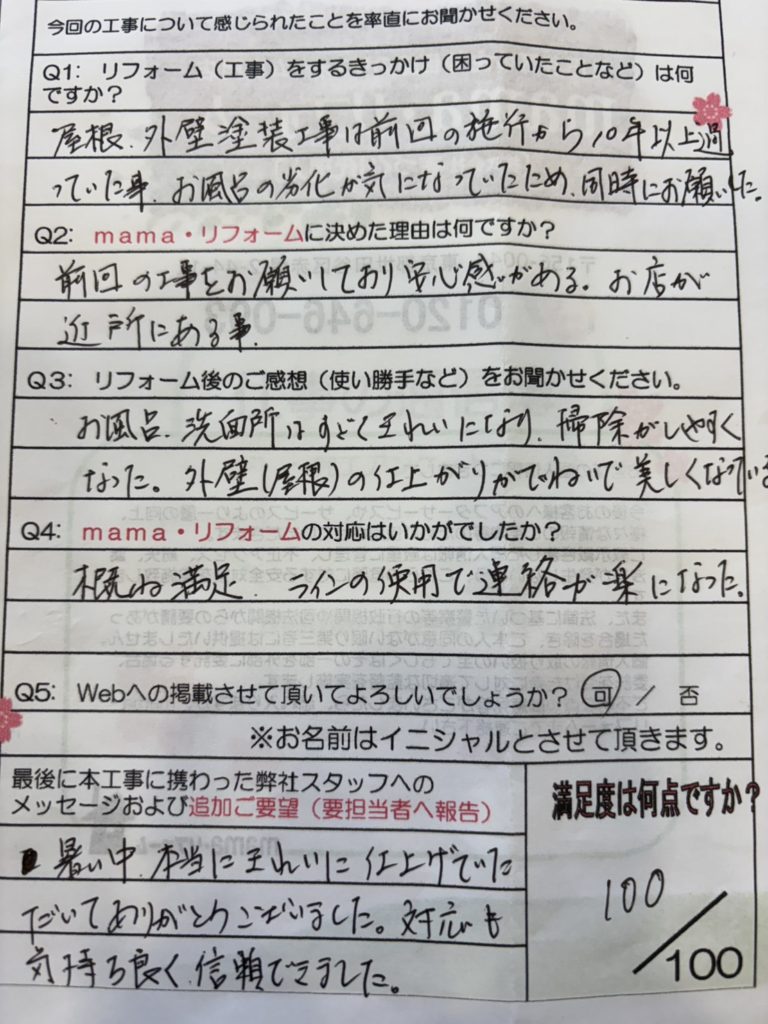 今回の工事について感じられたことを率直にお聞かせください。
Q1: リフォーム（工事）をするきっかけ（困っていたことなど）は何
ですか？
屋根、外壁塗装工事は前回の施行から10年以上過
っていた事、お風呂の劣化が気になっていたため、同時にお願いした。
Q2: mama・リフォームに決めた理由は何ですか？
前回の工事をお願いしており安心感がある。お店が
近所にある事。
Q3: リフォーム後のご感想（使い勝手など）をお聞かせください。
お風呂、洗面所はすごくきれいになり、掃除がしやすく
なった。外壁(屋根)の仕上がりがていねいで美しくなっている
Q4: mama・リフォームの対応はいかがでしたか？
概ね満足。ラインの使用で連絡が楽になった。
Q5: Webへの掲載させて頂いてよろしいでしょうか？ 可 / 否
※お名前はイニシャルとさせて頂きます。
最後に本工事に携わった弊社スタッフへの
メッセージおよび追加ご要望（要担当者へ報告）
暑い中、本当にきれいに仕上げていた
だいてありがとうございました。対応も
気持ち良く、信頼できました。
満足度は何点ですか？
100
/100